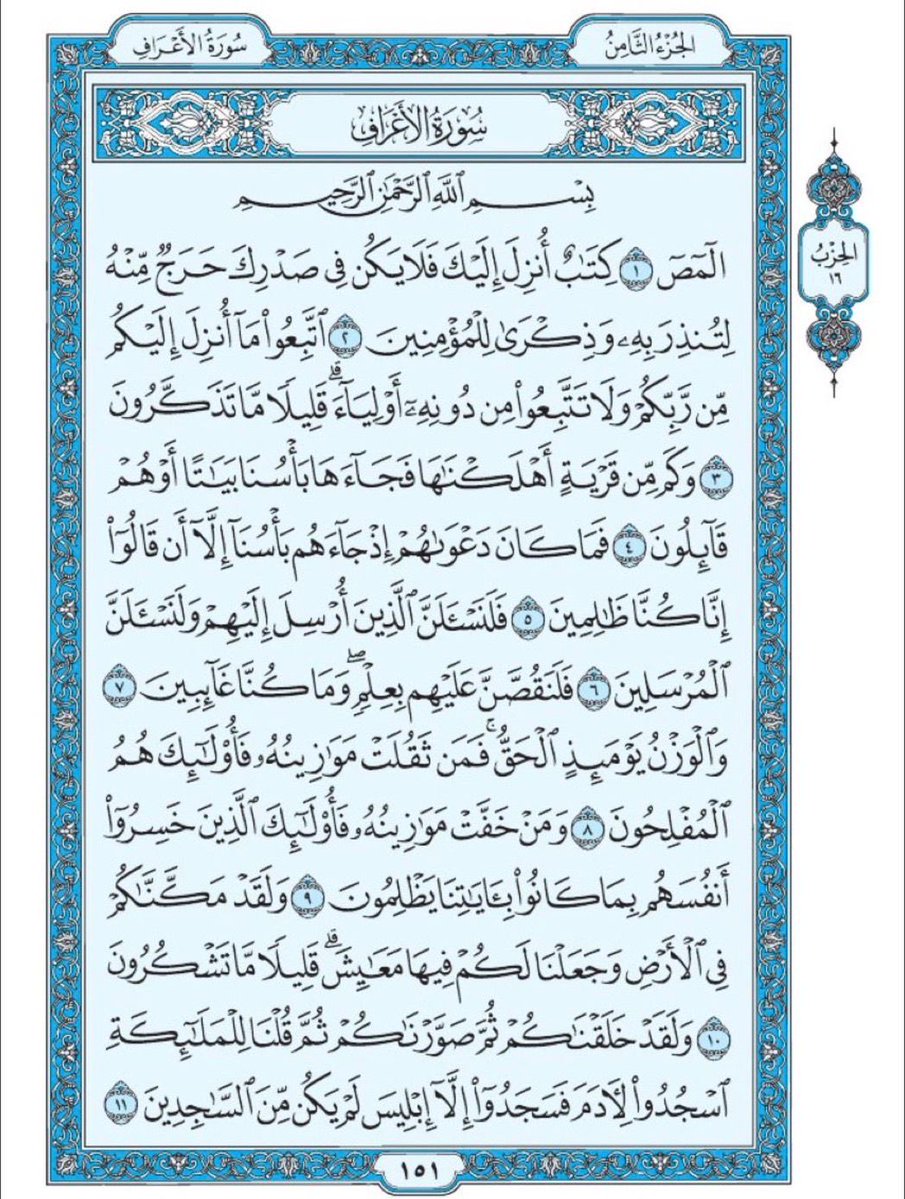 الجُزْءُ الثَّامِنُ
سُورَةُ الأَعْرَافِ
سُورَةُ الأَعْرَافِ
الحِزْبُ
١٦
بِسْمِ ٱللَّهِ ٱلرَّحْمَٰنِ ٱلرَّحِيمِ
الٓمٓصٓ ١ كِتَٰبٌ أُنزِلَ إِلَيْكَ فَلَا يَكُن فِى صَدْرِكَ حَرَجٌ مِّنْهُ
لِتُنذِرَ بِهِۦ وَذِكْرَىٰ لِلْمُؤْمِنِينَ ٢ ٱتَّبِعُوا۟ مَآ أُنزِلَ إِلَيْكُم
مِّن رَّبِّكُمْ وَلَا تَتَّبِعُوا۟ مِن دُونِهِۦٓ أَوْلِيَآءَ ۗ قَلِيلًا مَّا تَذَكَّرُونَ
٣ وَكَم مِّن قَرْيَةٍ أَهْلَكْنَٰهَا فَجَآءَهَا بَأْسُنَا بَيَٰتًا أَوْ هُمْ
قَآئِلُونَ ٤ فَمَا كَانَ دَعْوَىٰهُمْ إِذْ جَآءَهُم بَأْسُنَآ إِلَّآ أَن قَالُوٓا۟
إِنَّا كُنَّا ظَٰلِمِينَ ٥ فَلَنَسْـَٔلَنَّ ٱلَّذِينَ أُرْسِلَ إِلَيْهِمْ وَلَنَسْـَٔلَنَّ
ٱلْمُرْسَلِينَ ٦ فَلَنَقُصَّنَّ عَلَيْهِم بِعِلْمٍ ۖ وَمَا كُنَّا غَآئِبِينَ ٧
وَٱلْوَزْنُ يَوْمَئِذٍ ٱلْحَقُّ ۚ فَمَن ثَقُلَتْ مَوَٰزِينُهُۥ فَأُو۟لَٰٓئِكَ هُمُ
ٱلْمُفْلِحُونَ ٨ وَمَنْ خَفَّتْ مَوَٰزِينُهُۥ فَأُو۟لَٰٓئِكَ ٱلَّذِينَ خَسِرُوٓا۟
أَنفُسَهُم بِمَا كَانُوا۟ بِـَٔايَٰتِنَا يَظْلِمُونَ ٩ وَلَقَدْ مَكَّنَّٰكُمْ
فِى ٱلْأَرْضِ وَجَعَلْنَا لَكُمْ فِيهَا مَعَٰيِشَ ۗ قَلِيلًا مَّا تَشْكُرُونَ
١٠ وَلَقَدْ خَلَقْنَٰكُمْ ثُمَّ صَوَّرْنَٰكُمْ ثُمَّ قُلْنَا لِلْمَلَٰٓئِكَةِ
ٱسْجُدُوا۟ لِـَٔادَمَ فَسَجَدُوٓا۟ إِلَّآ إِبْلِيسَ لَمْ يَكُن مِّنَ ٱلسَّٰجِدِينَ ١١
١٥١